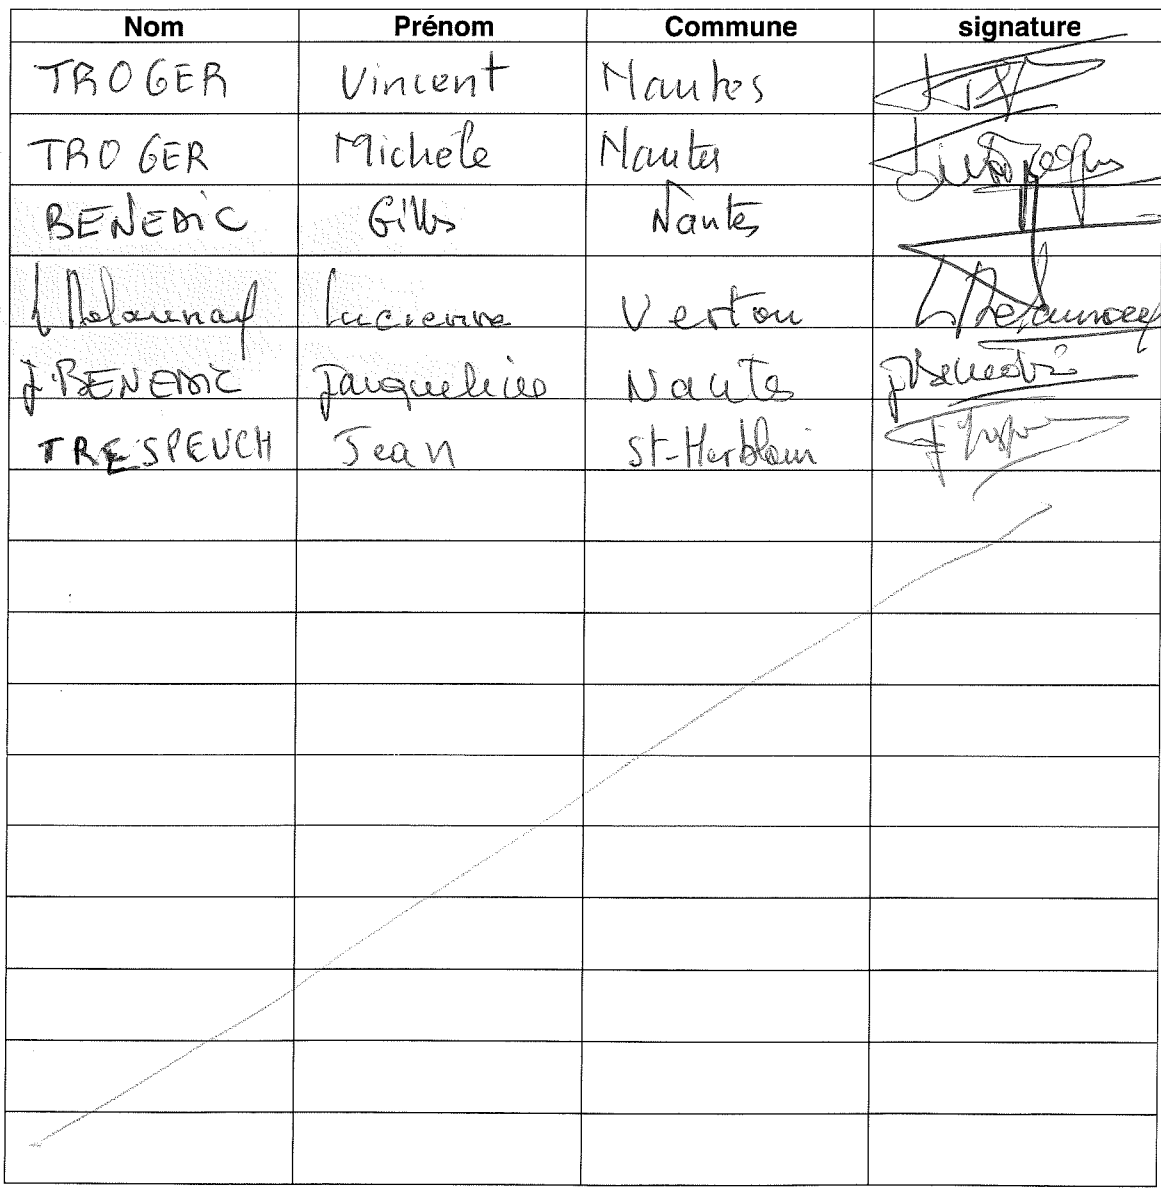 Nom Prénom Commune signature
TROGER Vincent Nantes
TROGER Michèle Nantes
BENEDIC Gilles Nantes
L Delaunay Lucienne Vertou L Delaunay
J. BENEDIC Jacqueline Nantes J Benedic
TRESPEUCH Jean St-Herblain